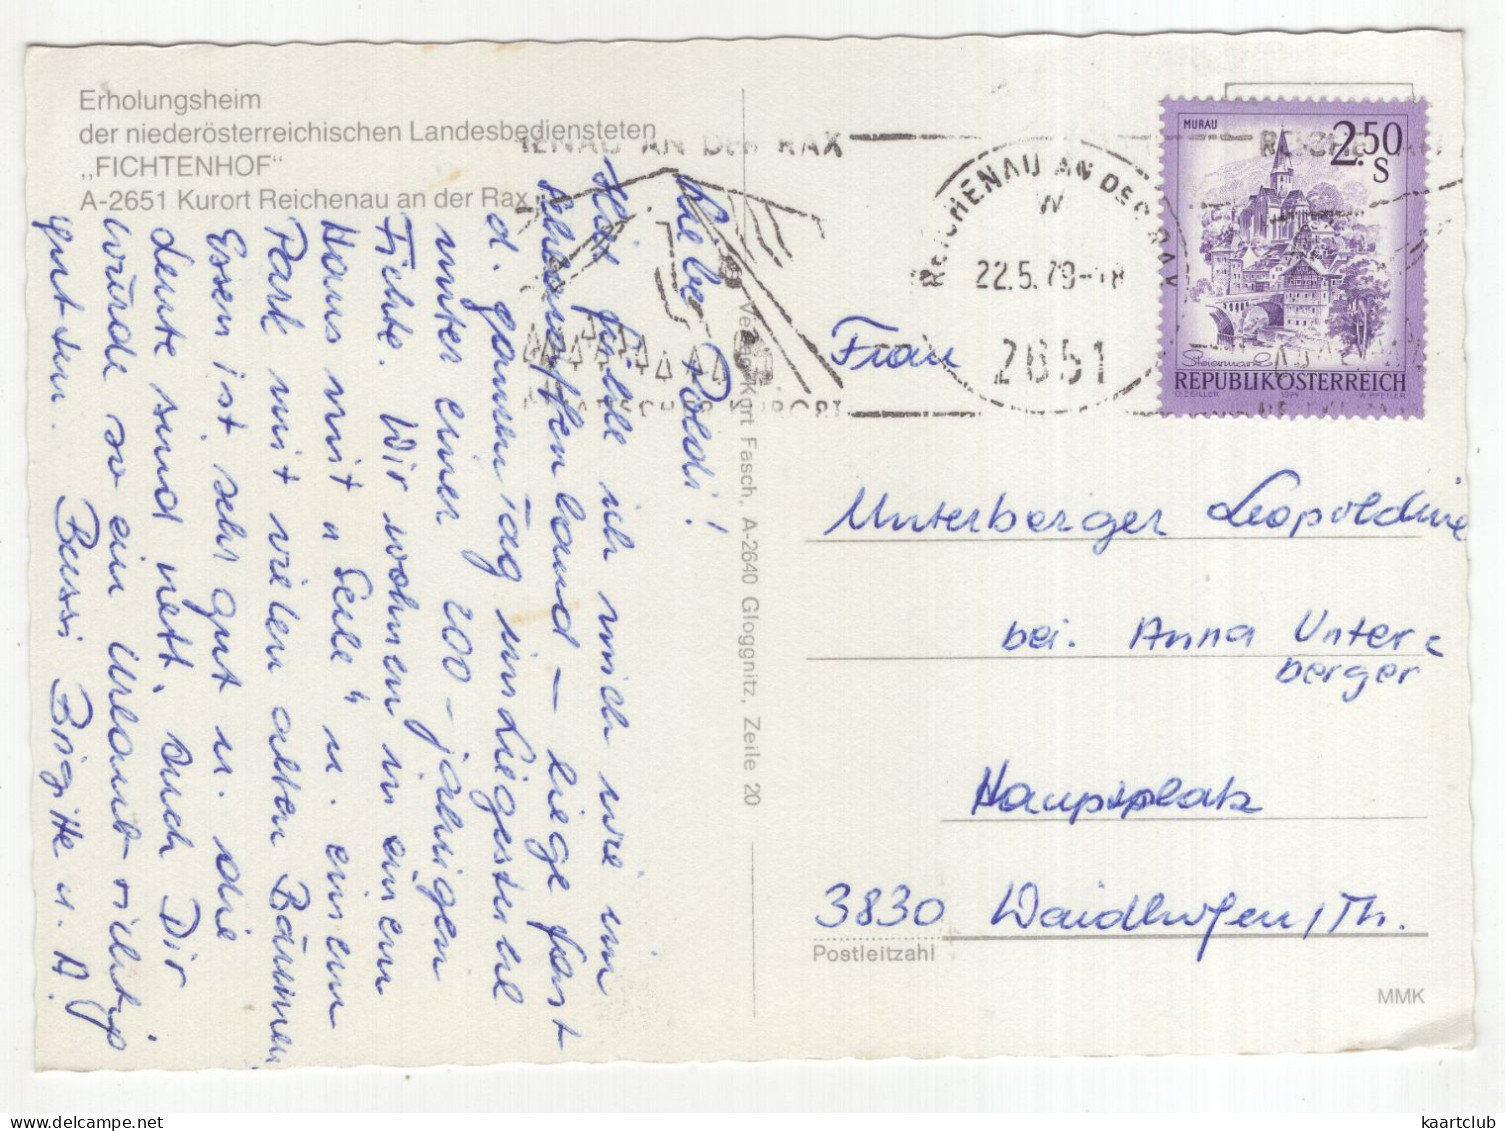 Erholungsheim
der niederösterreichischen Landesbediensteten
„FICHTENHOF“
A-2651 Kurort Reichenau an der Rax
Liebe Poldi!
Hier fühle ich mich wie im
Schlaraffenland – liege fast
d. ganzen Tag im Liegestuhl
unter einer 200-jährigen
Fichte. Wir wohnen in einem
Haus mit „Seele“ u. einem
Park mit vielen alten Bäumen
Essen ist sehr gut u. die
Leute sind nett. Auch Dir
würde so ein Urlaub richtig
gut tun. Bussi Brigitte u. A.
Verlag Kort Fasch, A-2640 Gloggnitz, Zeile 20
ENAU AN DER RAX
REICHENAU AN DER RAX
22.5.79-18
2651
MURAU
2.50
S
Steiermark
REPUBLIK ÖSTERREICH
O. ZEILLER 1974 W. PFEILER
Frau
Unterberger Leopoldine
bei. Anna Unter-
berger
Hauptplatz
3830 Waidhofen/Th.
Postleitzahl
MMK
kaartclub